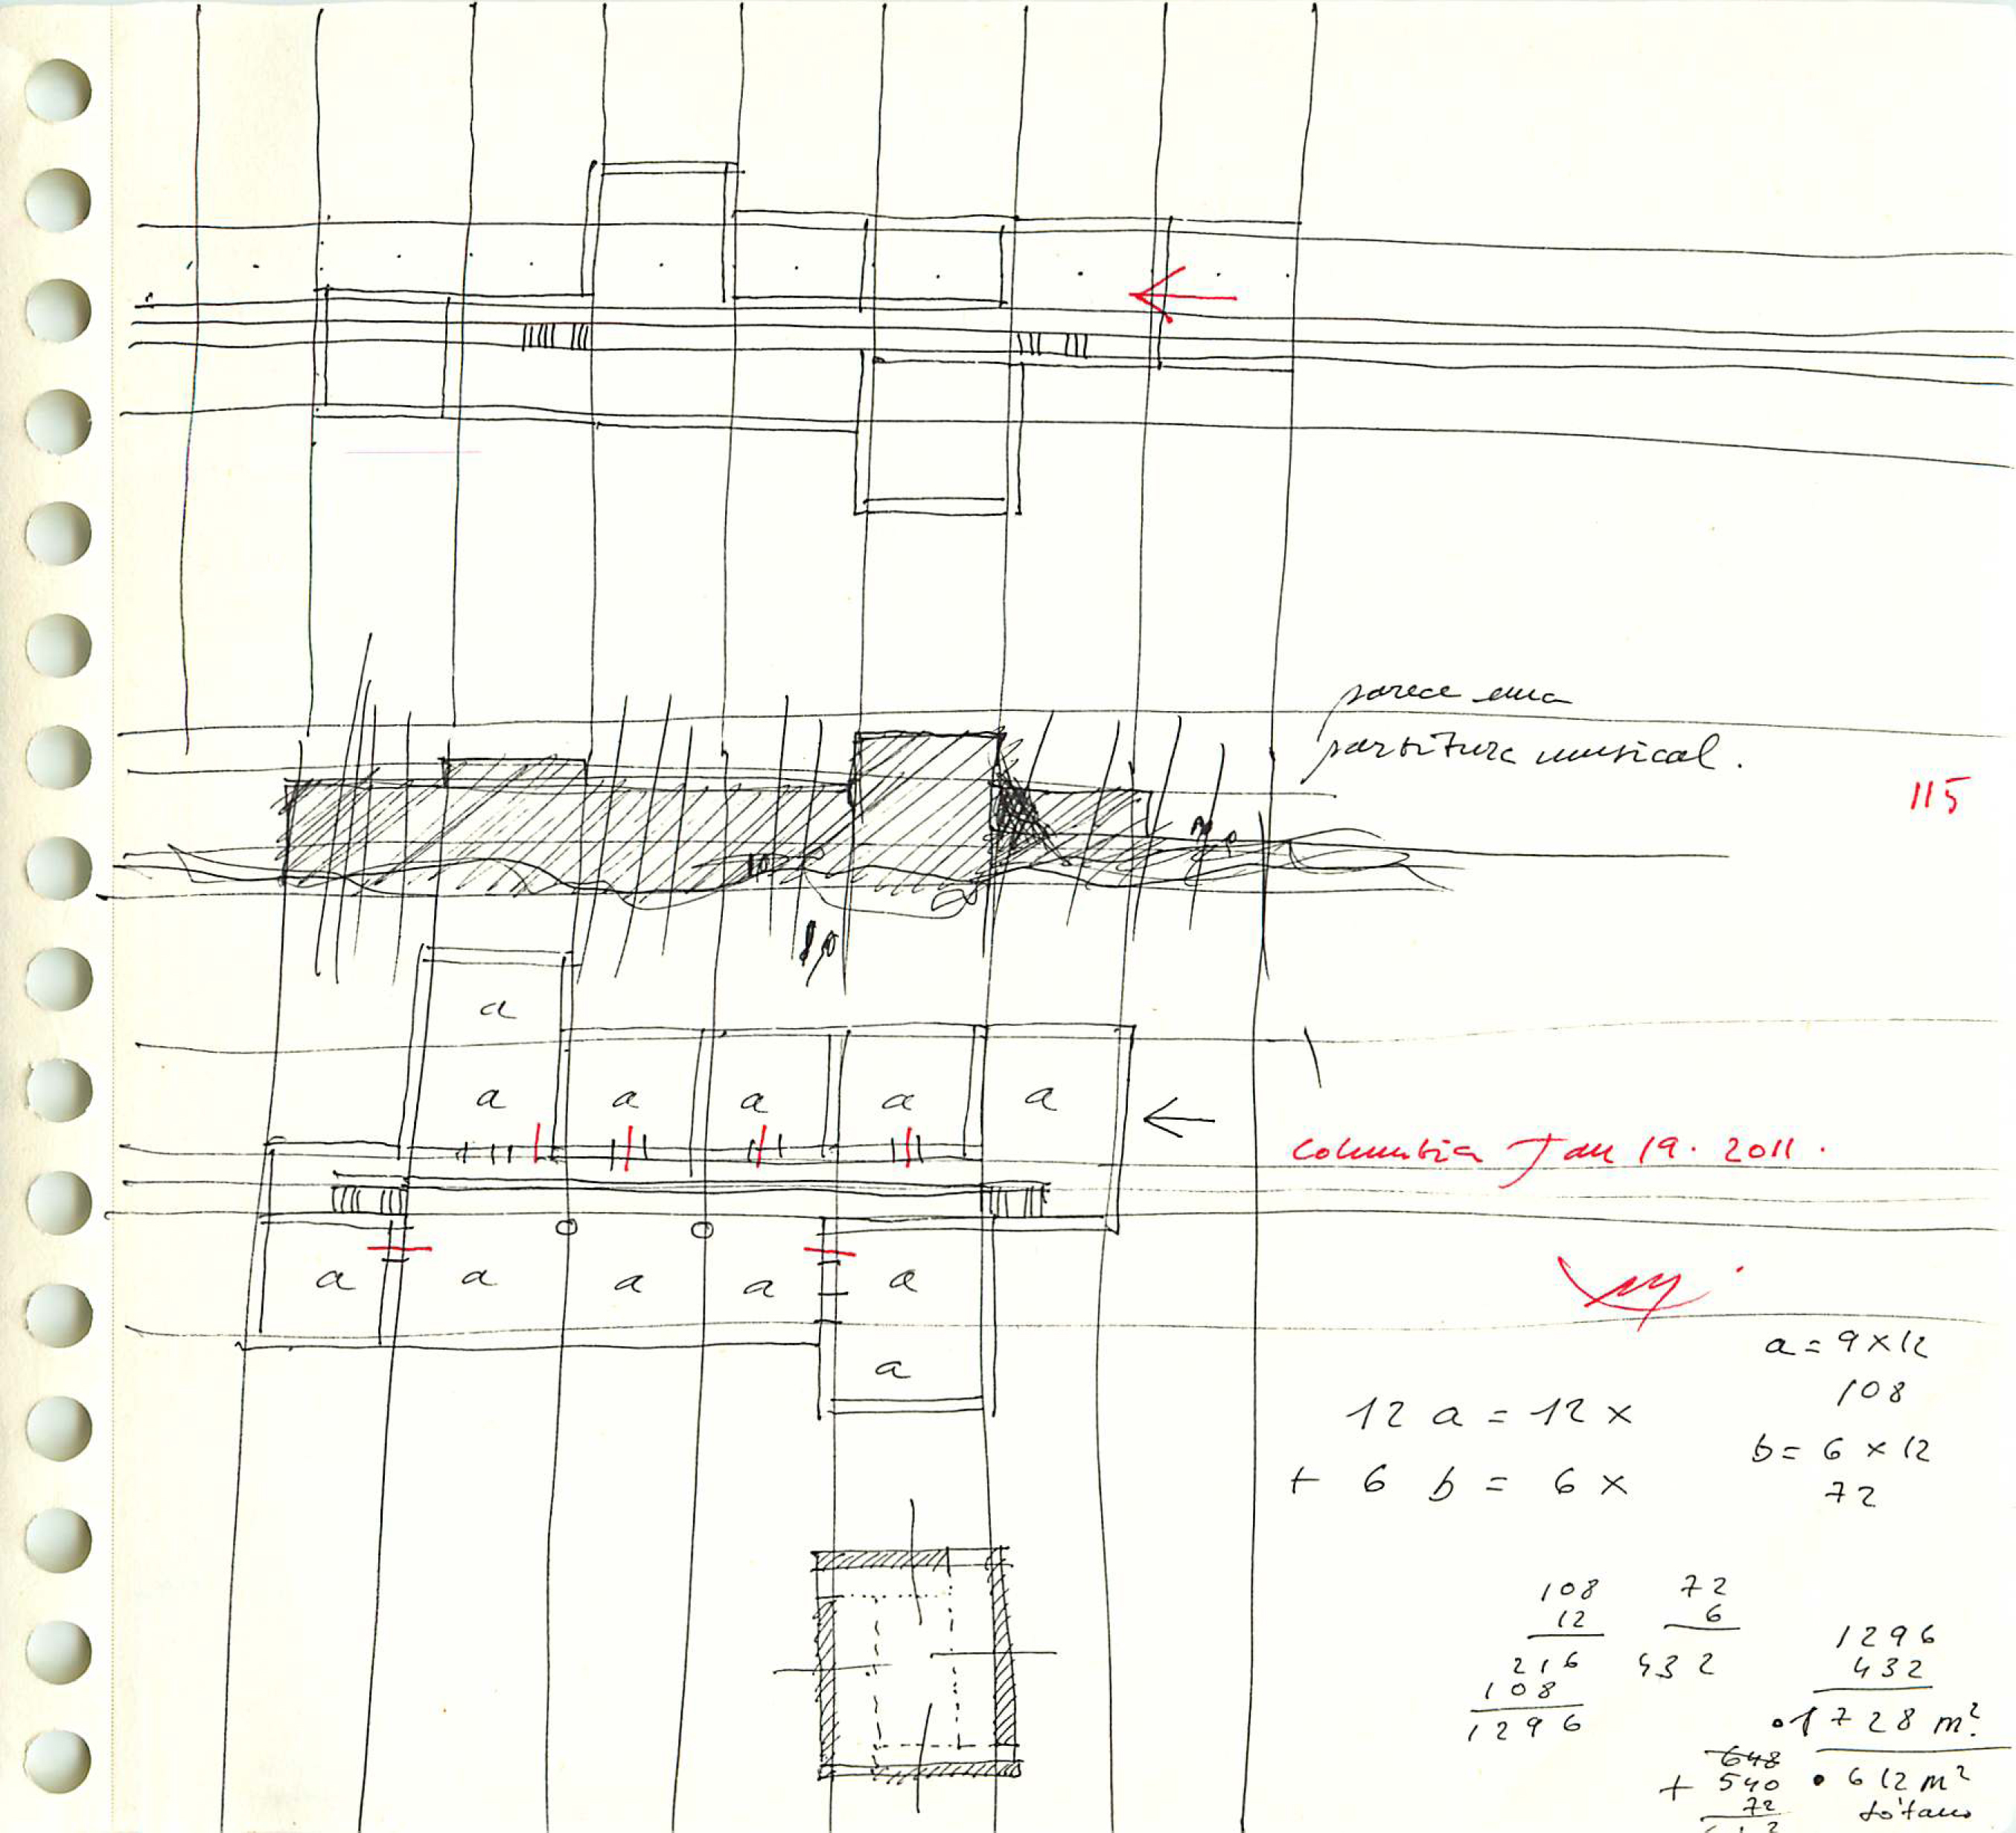 parece una
partitura musical.
115
a
a a a a a
Columbia Jan 19. 2011.
a a a a a
a
a = 9 x 12
108
12 a = 12 x
b = 6 x 12
+ 6 b = 6 x
72
108
12
216
108
1296
72
6
432
1296
432
1728 m²
648
+ 540
72
612 m²
sótano